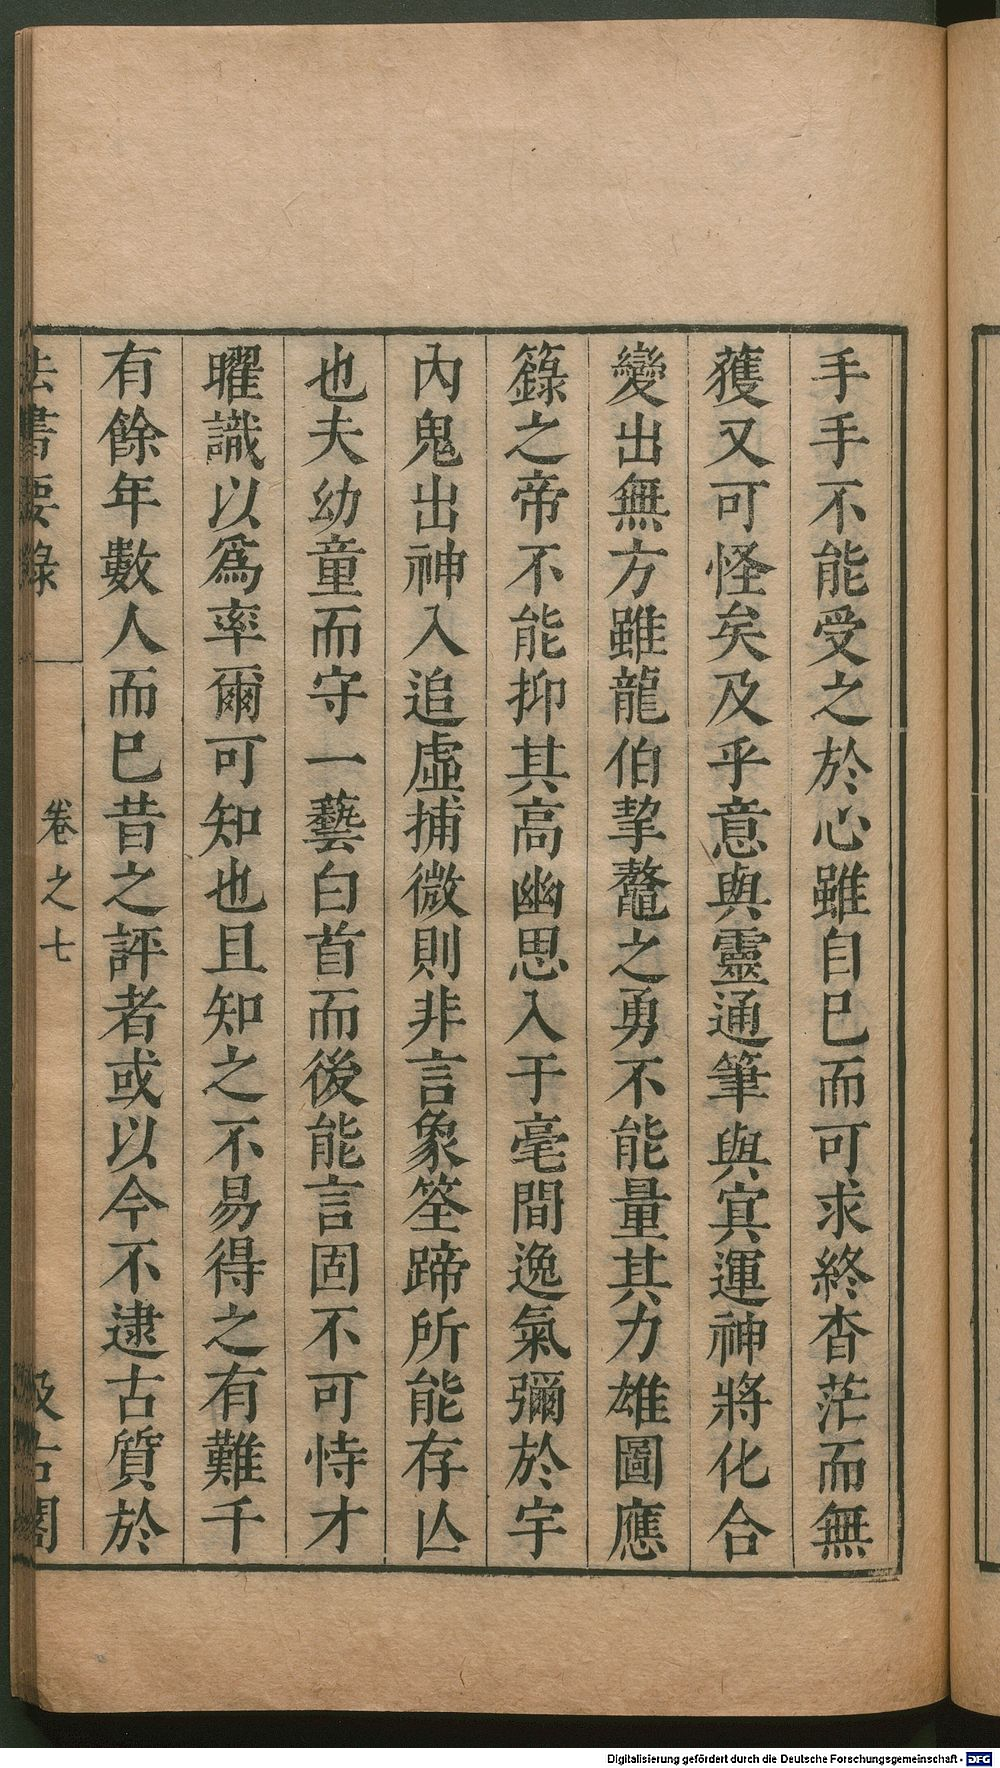 手手不能受之於心雖自巳而可求終杳茫而無
獲又可怪矣及乎意與靈通筆與冥運神將化合
變出無方雖龍伯挈鼇之勇不能量其力雄圖應
籙之帝不能抑其高幽思入于毫間逸氣彌於宇
內鬼出神入追虛捕微則非言象筌蹄所能存亾
也夫幼童而守一藝白首而後能言固不可恃才
曜識以爲率爾可知也且知之不易得之有難千
有餘年數人而巳昔之評者或以今不逮古質於
法書要錄
卷之七
汲古閣
Digitalisierung gefördert durch die Deutsche Forschungsgemeinschaft - DFG